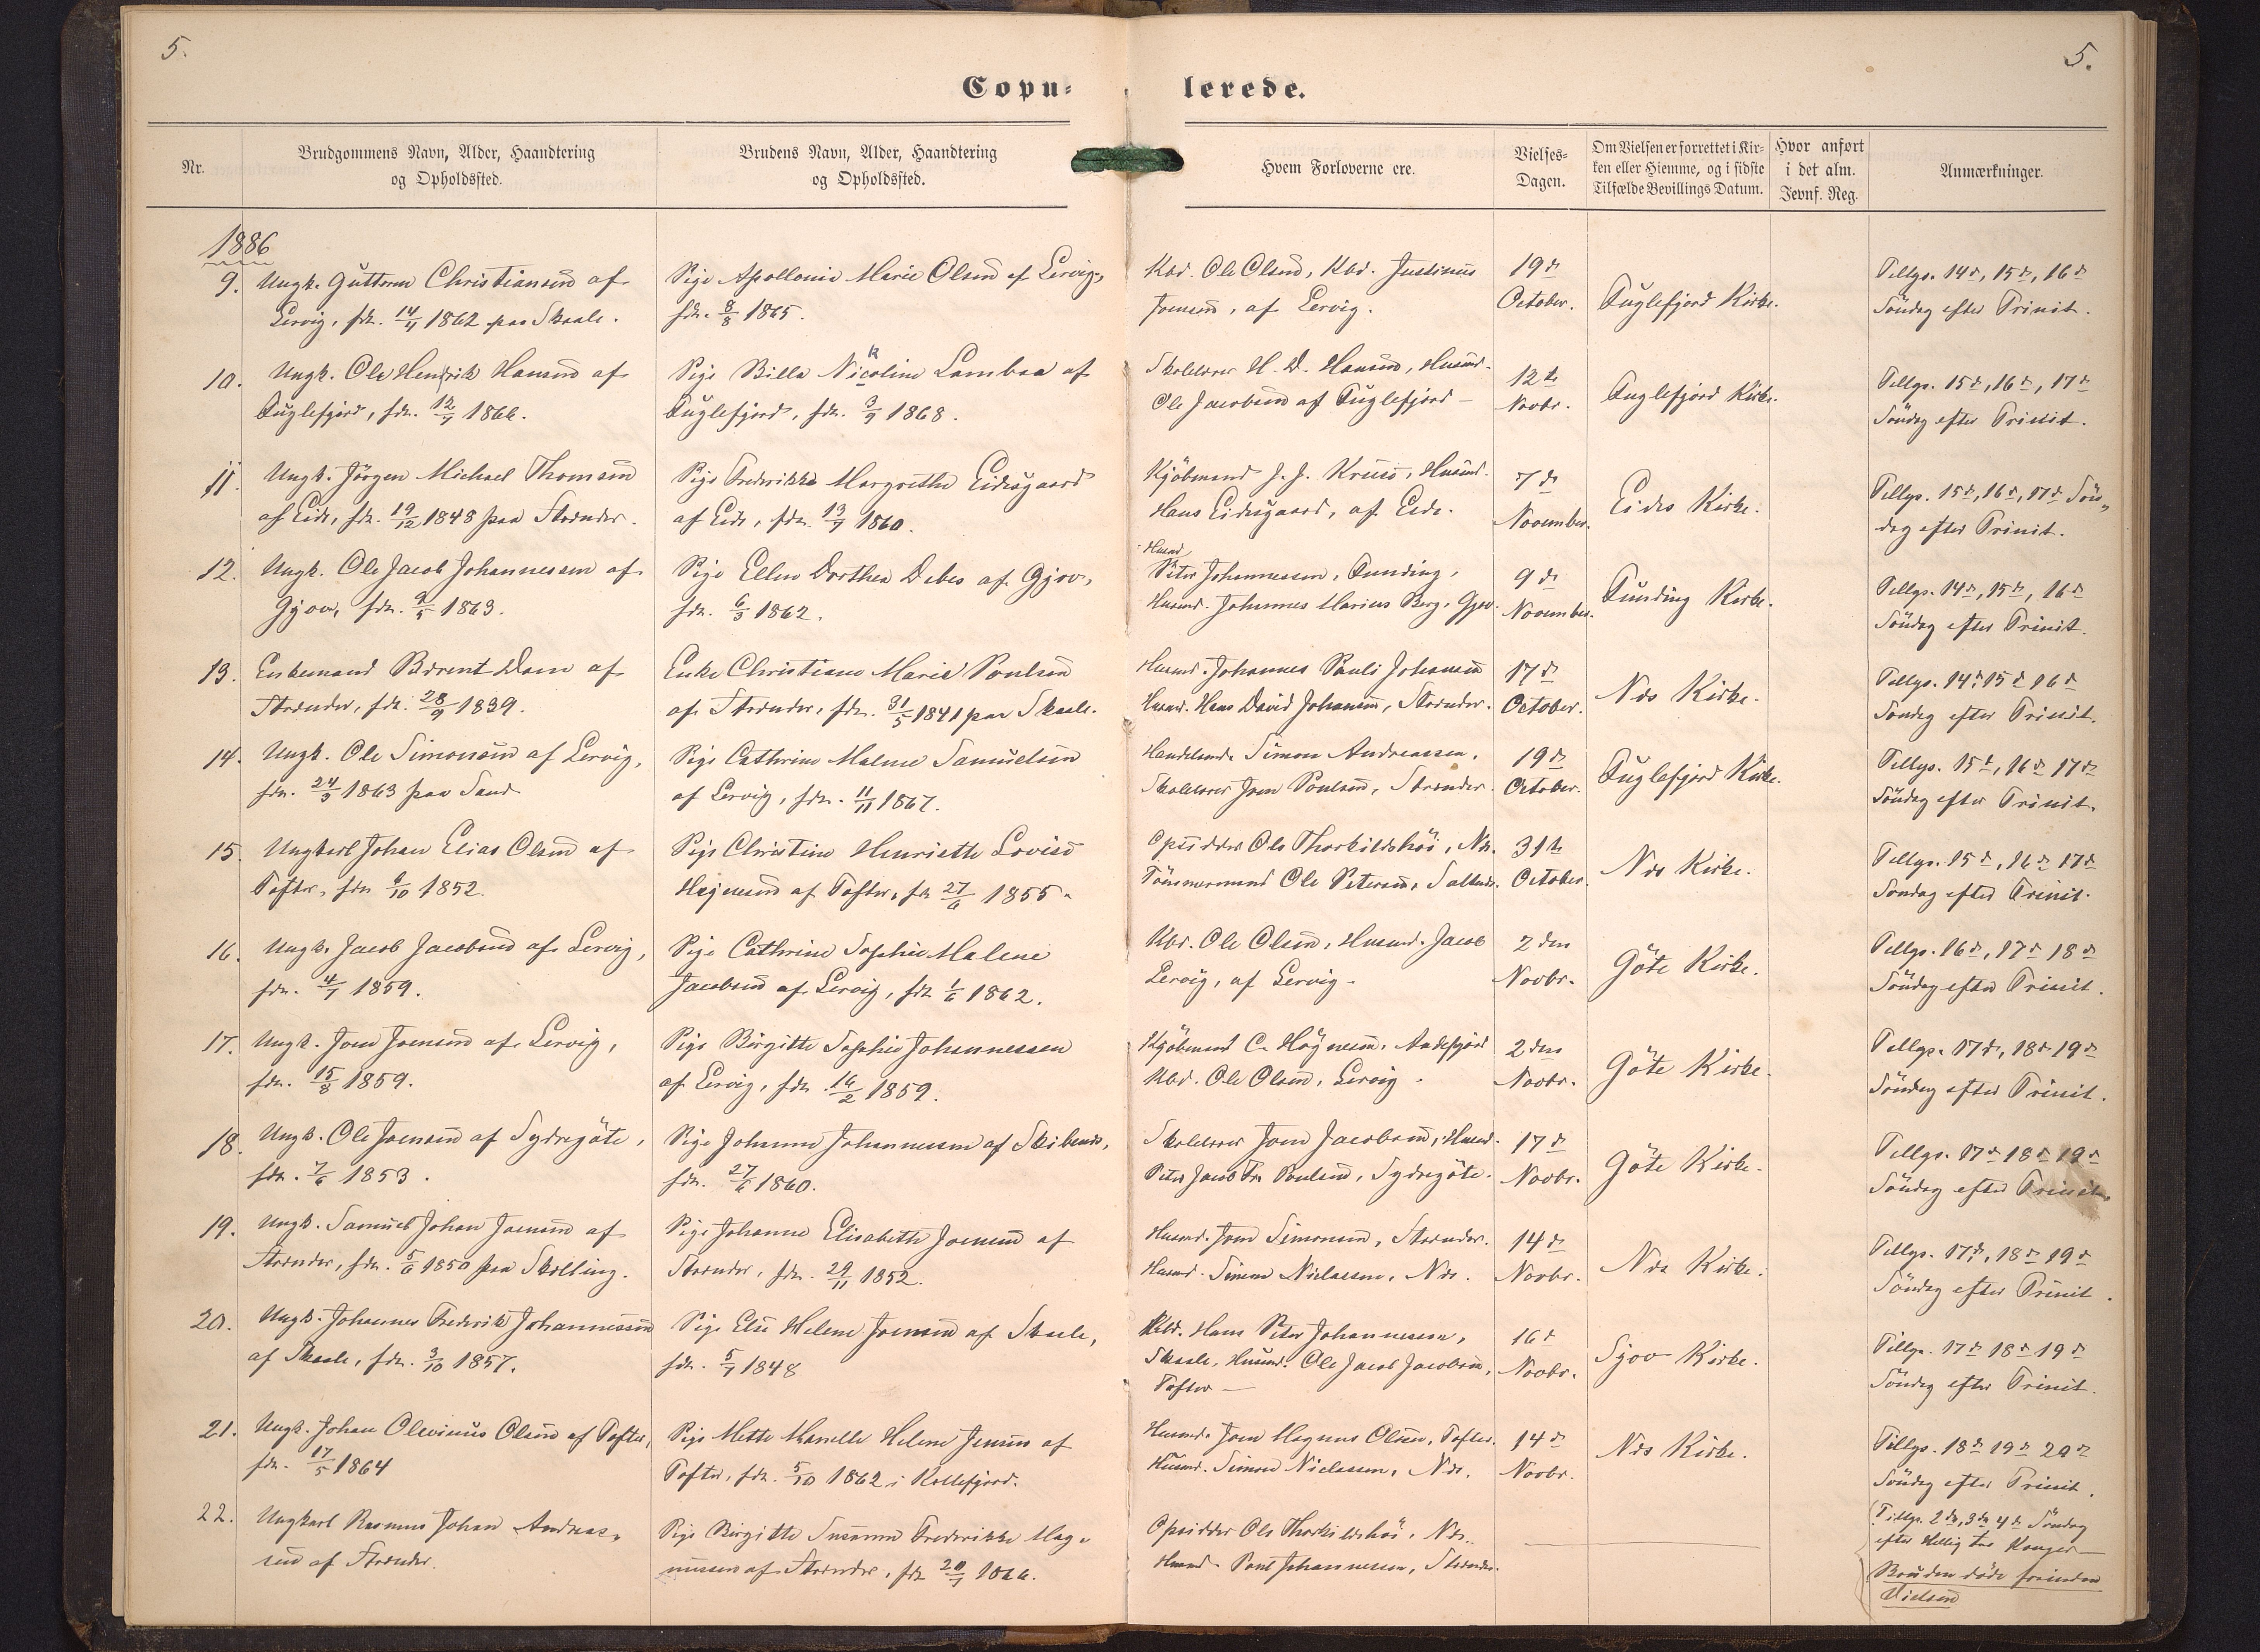 5.
5.
Copu-
lerede.
Nr.
Brudgommens Navn, Alder, Haandtering
og Opholdssted.
Brudens Navn, Alder, Haandtering
og Opholdssted.
Hvem Forloverne ere.
Vielses-
Dagen.
Om Vielsen er forrettet i Kir-
ken eller Hjemme, og i sidste
Tilfælde Bevillings Datum.
Hvor anført
i det alm.
Jevnf. Reg.
Anmærkninger.
1886
9. Ungk. Guttorm Christiansen af
Lervig, fdt. 14/4 1862 paa Skaale.
Pige Apollonie Marie Olsen af Lervig,
fdt. 8/8 1865.
Kbd. Ole Olsen, Kbd. Justinus
Joensen, af Lervig.
19de
October.
Fuglefjord Kirke.
Tillys. 14de, 15de, 16de
Söndag efter Trinit.
10. Ungk. Ole Hendrik Hansen af
Fuglefjord, fdt. 12/7 1866.
Pige Billa Nicoline Lambaa af
k
Fuglefjord, fdt. 3/9 1868.
Skolelærer H. D. Hansen, Husmd.
Ole Jacobsen af Fuglefjord –
12te
Novbr.
Fuglefjord Kirke.
Tillys. 15de, 16de, 17de
Söndag efter Trinit.
11. Ungk. Jörgen Michael Thomsen
af Eide, fdt. 19/12 1848 paa Strænder.
Pige Frederikke Margrethe Eidesgaard
af Eide, fdt. 13/9 1860.
Kjöbmand J. J. Kruse, Husmd.
Hans Eidesgaard, af Eide.
7de
November.
Eides Kirke.
Tillys. 15de, 16de, 17de Sön-
dag efter Trinit.
12. Ungk. Ole Jacob Johannessen af
Gjov, fdt. 9/5 1863.
Pige Ellen Dorthea Debes af Gjov,
fdt. 6/3 1862.
Husmd.
Peter Johannessen, Funding,
Husmd. Johannes Marius Berg, Gjov.
9de
November.
Funding Kirke.
Tillys. 14de, 15de, 16de
Söndag efter Trinit.
13. Enkemand Bærent Dam af
Strænder, fdt. 28/9 1839.
Enke Christiane Marie Poulsen
af Strænder, fdt. 31/5 1841 paa Skaale.
Husmd. Johannes Pauli Johansen
Husmd. Hans David Johansen, Strænder.
17de
October.
Næs Kirke.
Tillys. 14de 15de 16de
Söndag efter Trinit.
14. Ungk. Ole Simonsen af Lervig,
fdt. 24/3 1863 paa Sand
Pige Cathrine Malene Samuelsen
af Lervig, fdt. 11/11 1867.
Handelsmd. Simon Andreassen,
Skolelærer Joen Poulsen, Strænder.
19de
October.
Fuglefjord Kirke.
Tillys. 15de, 16de 17de
Söndag efter Trinit.
15. Ungkarl Johan Elias Olsen af
Tofter, fdt. 9/10 1852.
Pige Christine Henriette Lovise
Hognesen af Tofter, fdt. 27/6 1855.
Opsidder Ole Thorkildshöi, Næs.
Tömmermand Ole Petersen, Saltnæs.
31te
October.
Næs Kirke.
Tillys. 15de, 16de 17de
Söndag efter Trinit.
16. Ungk. Jacob Jacobsen af Lervig,
fdt. 4/7 1859.
Pige Cathrine Sophie Malene
Jacobsen af Lervig, fdt. 1/6 1862.
Kbd. Ole Olsen, Husmd. Jacob
Lervig, af Lervig.
2den
Novbr.
Göte Kirke.
Tillys. 16de, 17de 18de
Söndag efter Trinit.
17. Ungk. Joen Joensen af Lervig,
fdt. 15/8 1859.
Pige Birgitte Sophie Johannessen
af Lervig, fdt. 16/2 1859.
Kjöbmand C. Högnesen, Andefjord
Kbd. Ole Olsen, Lervig.
2den
Novbr.
Göte Kirke.
Tillys. 17de, 18de 19de
Söndag efter Trinit.
18. Ungk. Ole Joensen af Sydregöte,
fdt. 7/6 1853.
Pige Johanne Johannessen af Skibenæs,
fdt. 27/6 1860.
Skolelærer Joen Jacobsen, Husmd.
Peter Jacob Fr. Poulsen, Sydregöte.
17de
Novbr.
Göte Kirke.
Tillys. 17de 18de 19de
Söndag efter Trinit.
19. Ungk. Samuel Johan Joensen af
Strænder, fdt. 5/6 1850 paa Skælling.
Pige Johanne Elisabeth Joensen af
Strænder, fdt. 29/11 1852.
Husmd. Joen Simonsen, Strænder.
Husmd. Simon Niclassen, Næs.
14de
Novbr.
Næs Kirke.
Tillys. 17de, 18de 19de
Söndag efter Trinit.
20. Ungk. Johannes Frederik Johannessen
af Skaale, fdt. 3/10 1857.
Pige Else Helene Joensen af Skaale,
fdt. 5/7 1848
Kbd. Hans Peter Johannessen,
Skaale, Husmd. Ole Jacob Jacobsen,
Tofter –
16de
Novbr.
Sjov Kirke.
Tillys. 17de 18de 19de
Söndag efter Trinit.
21. Ungk. Johan Olevinus Olsen af Tofter,
fdt. 17/5 1864
Pige Mette Helene Jensen af
Tofter, fdt. 5/10 1862 i Kollefjord.
Husmd. Joen Magnus Olsen, Tofter.
Husmd. Simon Niclassen, Næs.
14de
Novbr.
Næs Kirke.
Tillys. 18de 19de 20de
Söndag efter Trinit.
22. Ungkarl Rasmus Johan Andreas-
sen af Strænder.
Pige Birgitte Susanne Frederikke Mag-
nussen af Strænder, fdt. 20/7 1866.
Opsidder Ole Thorkildshöi, Næs.
Husmd. Poul Johannessen, Strænder.
Tillys. 2den, 3die 4de Söndag
efter Hellig tre Konger –
Bruden döde forinden
Vielsen